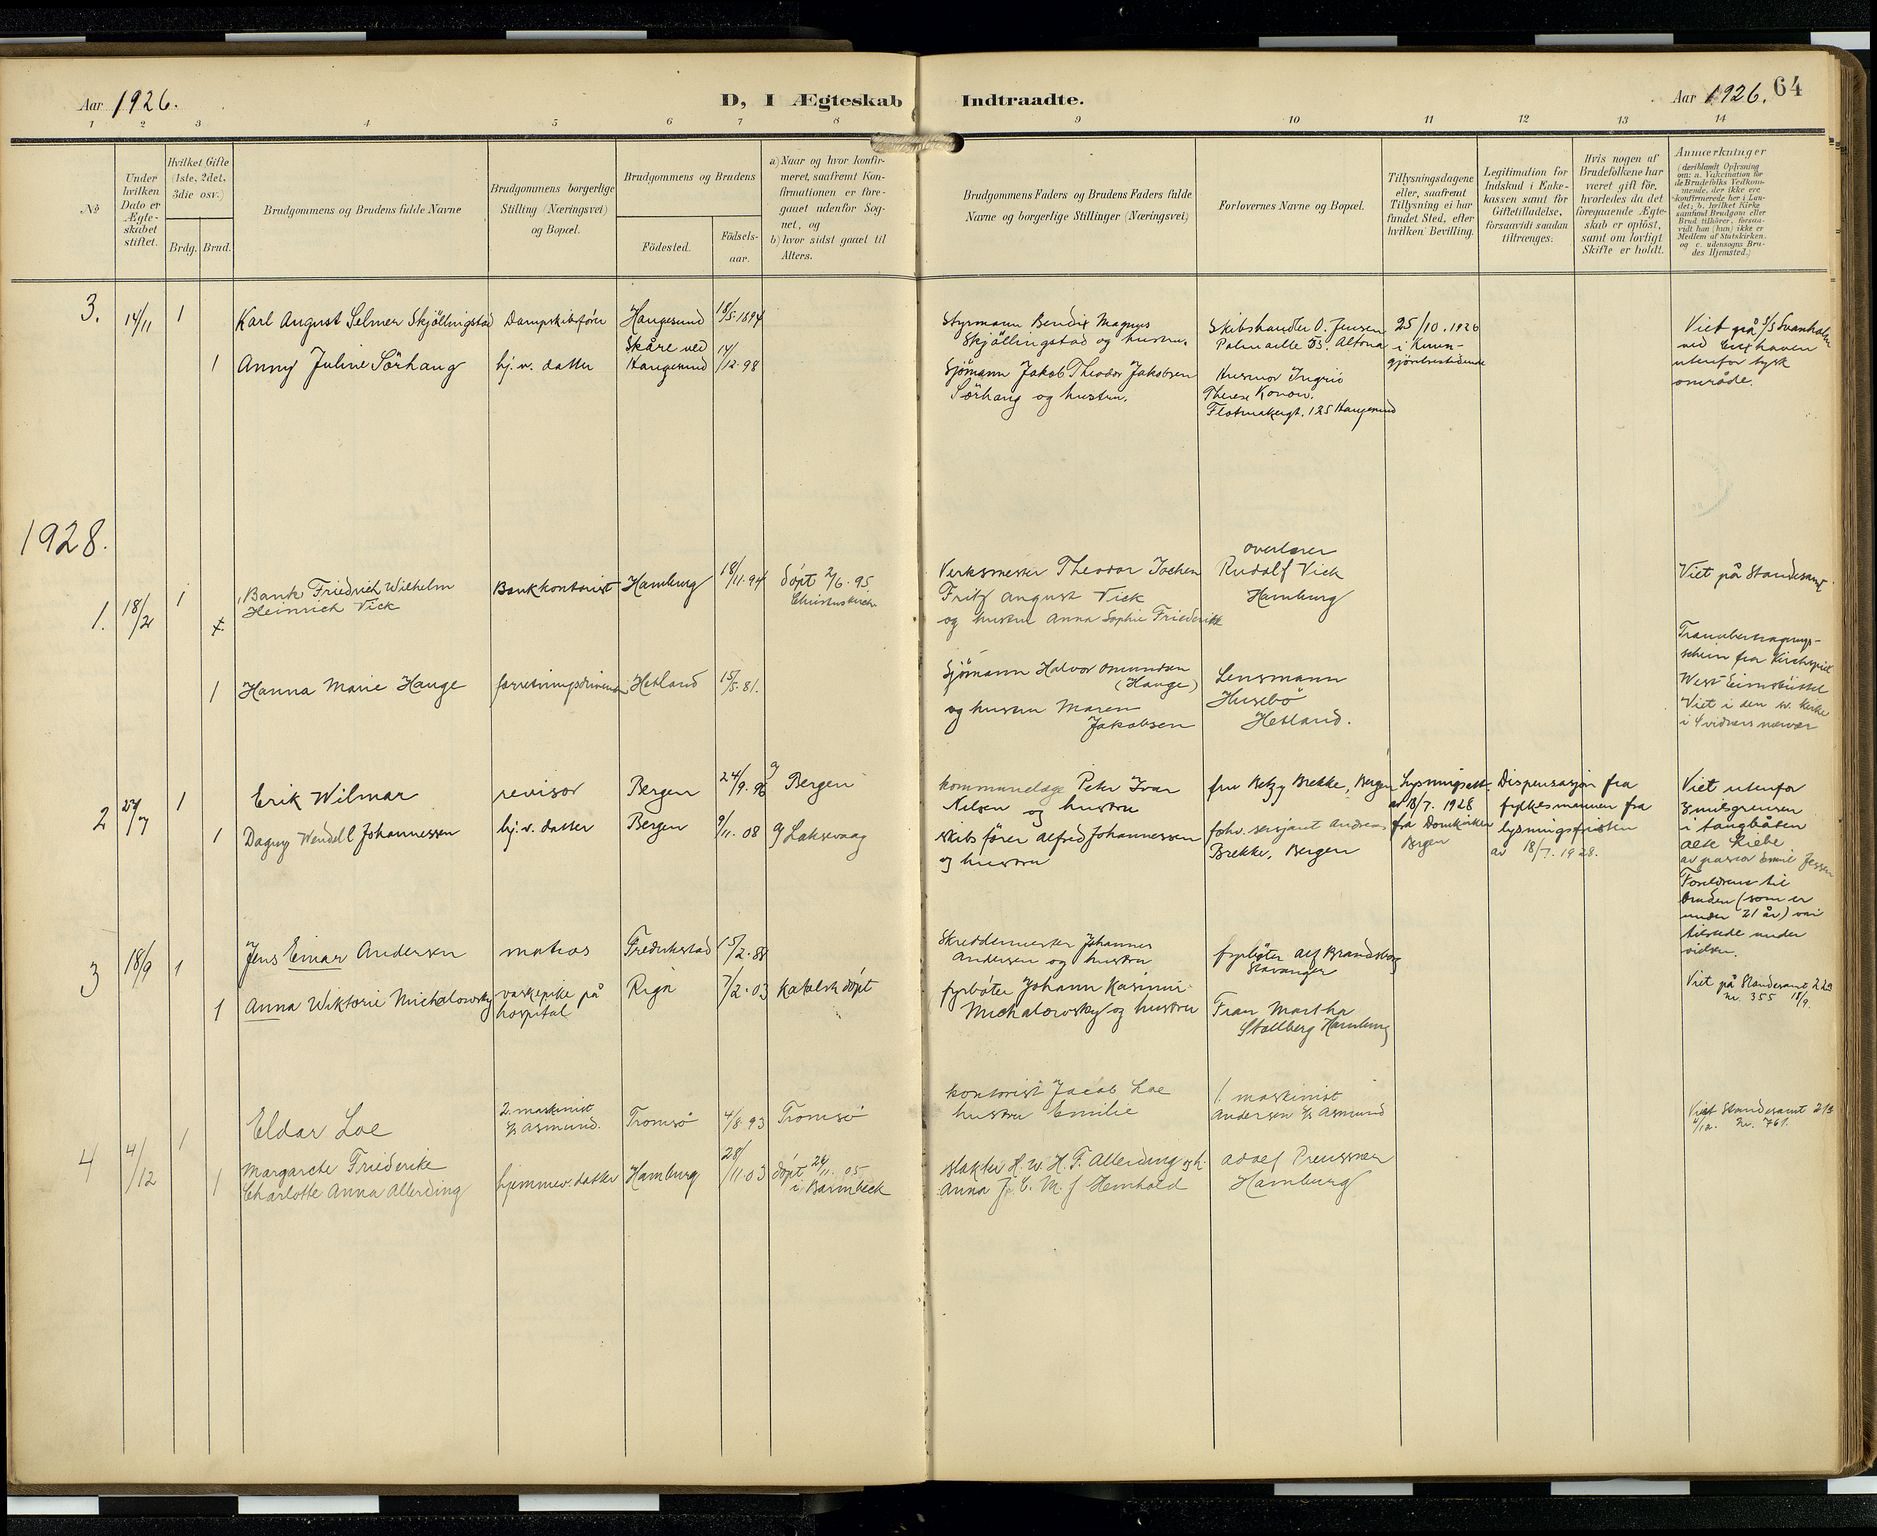 Aar 1926.
D, I Ægteskab Indtraadte.
Aar 1926.
64
1 2 3 4 5 6 7 8 9 10 11 12 13 14
No
Under
hvilken
Dato er
Ægte-
skabet
stiftet.
Hvilket Gifte
(1ste, 2det,
3die osv.)
Brdg. Brud.
Brudgommens og Brudens fulde Navne
Brudgommens borgerlige
Stilling (Næringsvei)
og Bopæl.
Brudgommens og Brudens
Födested.
Födsels-
aar.
a) Naar og hvor konfir-
meret, saafremt Kon-
firmationen er fore-
gaaet udenfor Sog-
net, og
b) hvor sidst gaaet til
Alters.
Brudgommens Faders og Brudens Faders fulde
Navne og borgerlige Stillinger (Næringsvei)
Forlovernes Navne og Bopæl.
Tillysningsdagene
eller, saafremt
Tillysning ei har
fundet Sted, efter
hvilken Bevilling.
Legitimation for
Indskud i Enke-
kassen samt for
Giftetilladelse,
forsaavidt saadan
tiltrænges.
Hvis nogen af
Brudefolkene har
været gift för,
hvorledes da det
foregaaende Ægte-
skab er oplöst,
samt om lovligt
Skifte er holdt.
Anmærkninger
(deriblandt Oplysning
om: a. Vakcination for
de Brudefolks Vedkom-
mende, der ikke ere
konfirmerede her i Lan-
det; b. hvilket Kirke-
samfund Brudgom eller
Brud tilhörer, forsaa-
vidt han (hun) ikke er
Medlem af Statskirken,
og c. udensogns Bru-
des Hjemsted.)
3. 14/11 1 Karl August Selmer Skjöllingstad Dampskibsfören Haugesund 18/5.1894
Styrmann Bendix Magnus
Skjöllingstad og hustru.
Skibshandler O. Jensen
Palmaille 53. Altona
25/10. 1926
i Kunn-
gjörelsestidende
Viet på S/S Svanholm
ved Cuxhaven
utenfor tysk
område.
1 Anny Juline Sörhaug hj.v. datter Skåre ved
Haugesund 14/12.98
Sjömann Jakob Theodor Jakobsen
Sörhaug og hustru.
Husmor Ingrid
Therese Konow.
Flotmakergt. 125 Haugesund
1928.
1. 18/2 1 Bank Friedrich Wilhelm
Heinrich Vick
Bankkontorist Hamburg 18/11.94 döpt 2/6.95
Christuskirche
Verksmester Theodor Jochen
Fritz August Vick
og hustru Anna Sophie Friederike
overlærer
Rudolf Vick
Hamburg
Viet på Standesamt
+.
1 Hanna Marie Hauge forretningsdrivende Hetland 15/5.81.
Sjømann Halvor Omundsen
(Hauge)
og hustru Maren
Jakobsen
Lensmann
Husebö
Hetland.
schein fra Kirchspiel
West-Eimsbüttel
Viet i den sv. kirke
i 4 vidners nærvær
2 27/7 1 Erik Wilmar revisor Bergen 24/9.96 g Bergen
kommunelæge Peter Ivar
Nilsen og hustru
fru Betzy Brekke, Bergen
Lysningsatt.
av 18/7. 1928
fra Domkirken
Bergen
Dispensasjon fra
fylkesmannen fra
lysningsfristen
av 18/7. 1928.
Viet utenfor
3 milsgrensen
i taugbåten
Alte Liebe
av pastor Emil Jessen
Foreldrene til
bruden (som er
under 21 år) var
tilstede under
vielsen.
1 Dagny Wendel Johannessen hj.v. datter Bergen 9/11.08 g Laksevaag
skibsfører Alfred Johannessen
og hustru
forhv. sersjant Andreas
Brekke, Bergen
3 18/9 1 Jens Einar Andersen matros Fredrikstad 15/2.88
Skreddermester Johannes
Andersen og hustru
fyrböter Alf Brandsborg
Stavanger
1 Anna Wiktorie Michalowsky vaskepike på
hospital
Riga 7/2.03 katolsk döpt
fyrböter Johann Kasimir
Michalowsky og hustru
Frau Martha
Stallberg Hamburg
Viet på Standesamt 22a
nr. 355 18/9.
4 4/12 1 Eldar Loe 2. maskinist
S/S Asmund. Tromsö 4/8.93 Tromsö
kontorist Jacob Loe
hustru Emilie
1. maskinist
Andersen S/S Asmund
Viet Standesamt 21a
4/12. nr. 761.
1 Margarete Friederike
Charlotte Anna Allerding
hjemmev. datter Hamburg 28/11.03 döpt 26/11.05
i Barmbeck
slakter H. W. H. F. Allerding og h.
Anna J. C. M. f. Hemhold
Adolf Preussner
Hamburg